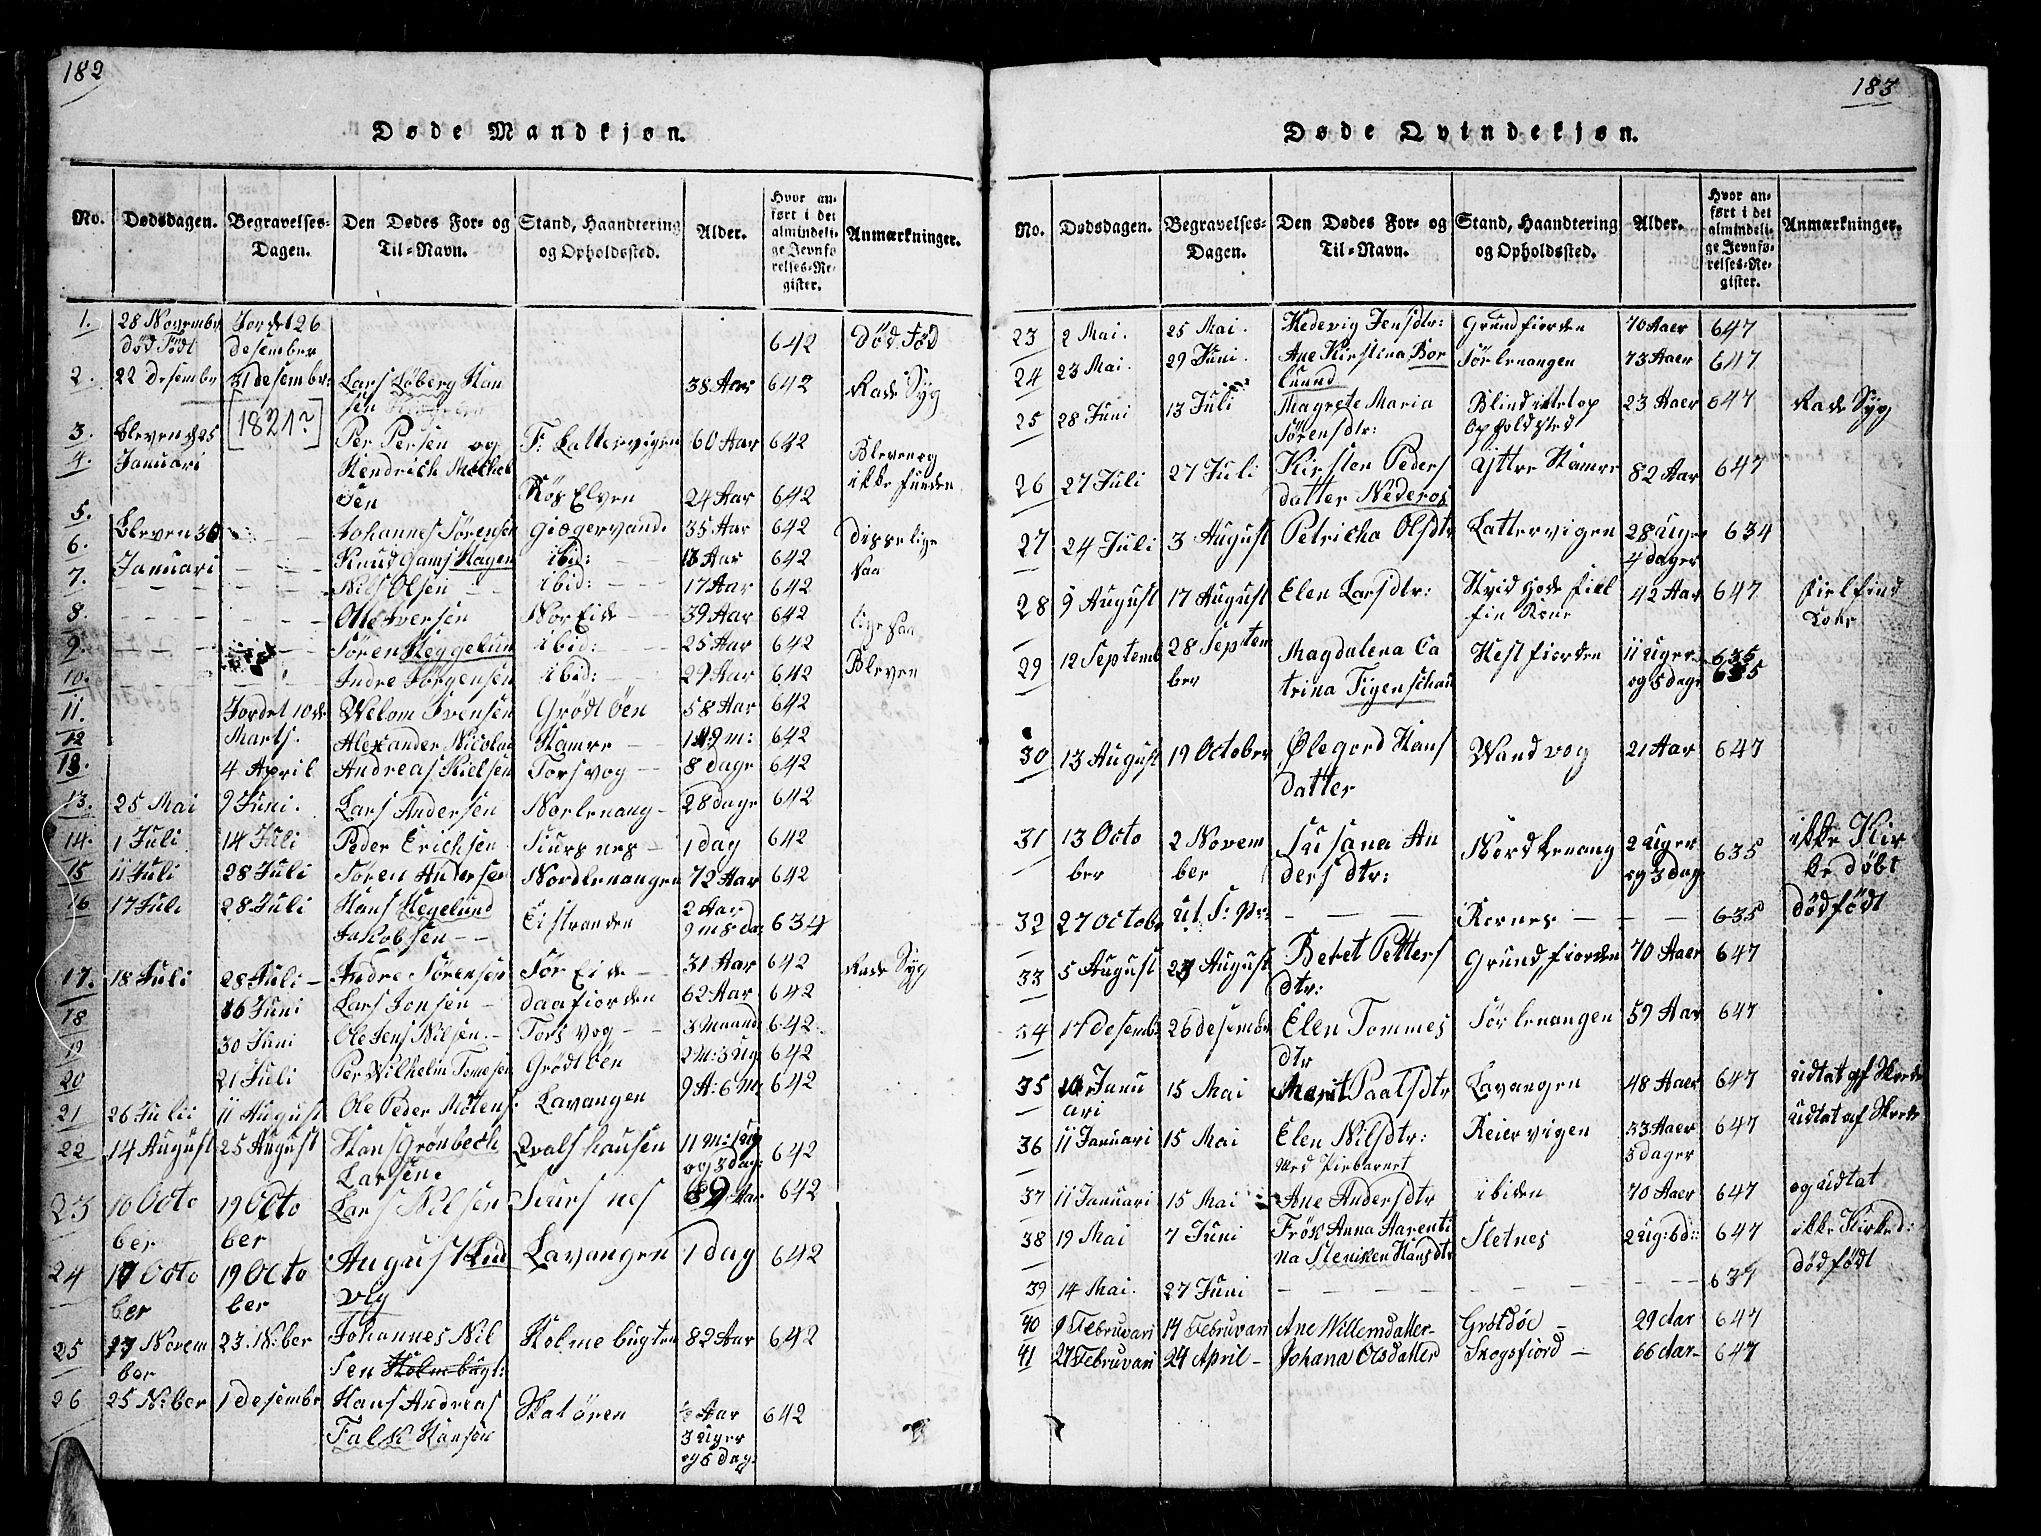 182
Døde Mandkjøn.
No.
Dødsdagen.
Begravelses-Dagen.
Den Dødes For- og Til-Navn.
Stand, Haandtering og Opholdssted.
Alder.
Hvor anført i det almindelige Jevnførelses-Register.
Anmærkninger.
1. 28 Novembr død Født Jordet 26 desember 642 Død Fød
2. 22 desembr 31 desembr: Lars Løberg Han
sen 38 Aar 642 Rade Syg
[1821?]
3. Bleven d 25 Per Persen og F: Lattervigen 60 Aar 642 Bleven og
4. Januari Hendrich Mickel
sen Røs Elven 24 Aar 642 ikke funden
5. Bleven 30 Johannes Sørensen Giøgervand. 35 Aar 642 disselige
6. Januari Knud Gams Hagen ibid: 13 Aar 642 Naa
7. Nils Olsen ibid: 17 Aar 642
8. Ole Iversen Nor Eide 39 Aar 642 lige saa
9. Sören Heggelun ibid: 25 Aar 642 Bleven
10. Andre Jörgensen ibid: 29 Aar 642
11. Jordet 10 de Welom Ivensen Grödt öen 58 Aar 642
12 Marts. Alexander Nicolai Hamre 642
13. 4 April Andreas Nielsen Torsvog 8 dage 642
13. 25 Mai 9 Juni. Lars Andersen Norlenang 28 dage 642
14. 1 Juli 14 Juli Peder Erichsen Siursnes 1 dag 642
15 11 Juli 28 Juli Sören Andersen Nordlenangen 72 Aar 642
16 17 Juli 28 Juli Hans Hegelund
Jakobsen Eistranden 2 Aar
9 m 8 da: 634
17. 18 Juli 28 Juli Andre Sörensen Sör Eide 31 Aar 642 Rade Syg
18 16 Juni Lars Jonsen daafiorden 62 Aar 642
19 30 Juni Ole Jens Nilsen Torsvog 3 Maand 642
20 21 Juli Per Wilhelm Tomesen Grödtöen 2 M: 3 ug 642
21 26 Julii 11 August Ole Peder Mortens: Lavangen 9 A: 6 M: 642
22 14 August 25 August Hans Grönbech
Larsen Qvalshausen 11 M: 1 ug
og 3 dag: 642
23 10 Octo
ber 19 Octo
ber Lars Nilsen Siursnes Aar 642
24 10 Octo
ber 19 Octo
ber August Lud
vig Lavangen 1 dag 642
25 17 Novem
ber 23 N:ber Johannes Nil
sen Holmebugt: Holmebugten 82 Aar 642
26 25 N:ber 1 desembr Hans Andreas
Falk Hansen Skatören ½ Aar
3 Uger
og 6 dag 642
183
Døde Qvindekjøn.
No.
Dødsdagen.
Begravelses-Dagen.
Den Dødes For- og Til-Navn.
Stand, Haandtering og Opholdssted.
Alder.
Hvor anført i det almindelige Jevnførelses-Register.
Anmærkninger.
23 2 Mai. 25 Mai. Hedevig Jensdtr: Grundfiorden 70 Aaer 647
24 23 Mai. 29 Juni. Ane Kirstina Bor
lund Sörlenangen 73 Aaer 647
25 28 Juni 13 Juli Magrete Maria
Sörensdtr: Blind
Opholdsted 23 Aaer 647 Rade Syg
26 27 Juli 27 Juli Kirsten Peders
datter Nederos Yttre Hamre 82 Aar 647
27 24 Juli 3 August Petricha Olsdtr Lattervigen 28 uger
4 dager 634
28 9 August 17 August Elen Larsdtr: Hvid Hode Fiel
fin Kone 42 Aar 647 Fielfind
Kone
29 12 Septemb 28 Septem
ber Magdalena Ca
trina Figenschau Hestfiorden 11 Uger
og 5 dage 635
635
30 13 August 19 October Ølegord Hans
datter Wandvog 21 Aar 647
31 13 Octo
ber 2 Novem
ber Susana An
dersdtr: Nord Lenang 2 Uger
og 3 dag 635 ikke Kir
ke döbt
32 27 Octobr ut S: pr: Kornes 635 dödfödt
33 5 August 23 August Beret Petters
dtr: Grundfiorden 70 Aaer 647
34 17 desemb 26 desembr Elen Tommes
dtr Sörlenangen 59 Aar 647
35 10 Janu
ari 15 Mai Marit Paalsdtr Lavangen 48 Aaer 647 udtat af Skrede
36 11 Januari 15 Mai Elen Nilsdtr:
med Piebarnet Reiervigen 33 Aaer
5 dager 647 udtat af Skrede
37 11 Januari 15 Mai Ane Andersdtr ibiden 70 Aaer 647 og udtat
38 19 Mai 7 Juni Frök Anna Aarenti
na Steniken Hansdtr Sletnes 2 ug: 6 d: 647 ikke Kirked:
39 14 Mai. 27 Juni 634 dödfödt
40 9 Februvari 14 Februvari Ane Willemdatter Grötöe 29 Aar 647
41 27 Februvari 24 April Johana Olsdatter Skogsfiord 66 Aar 647